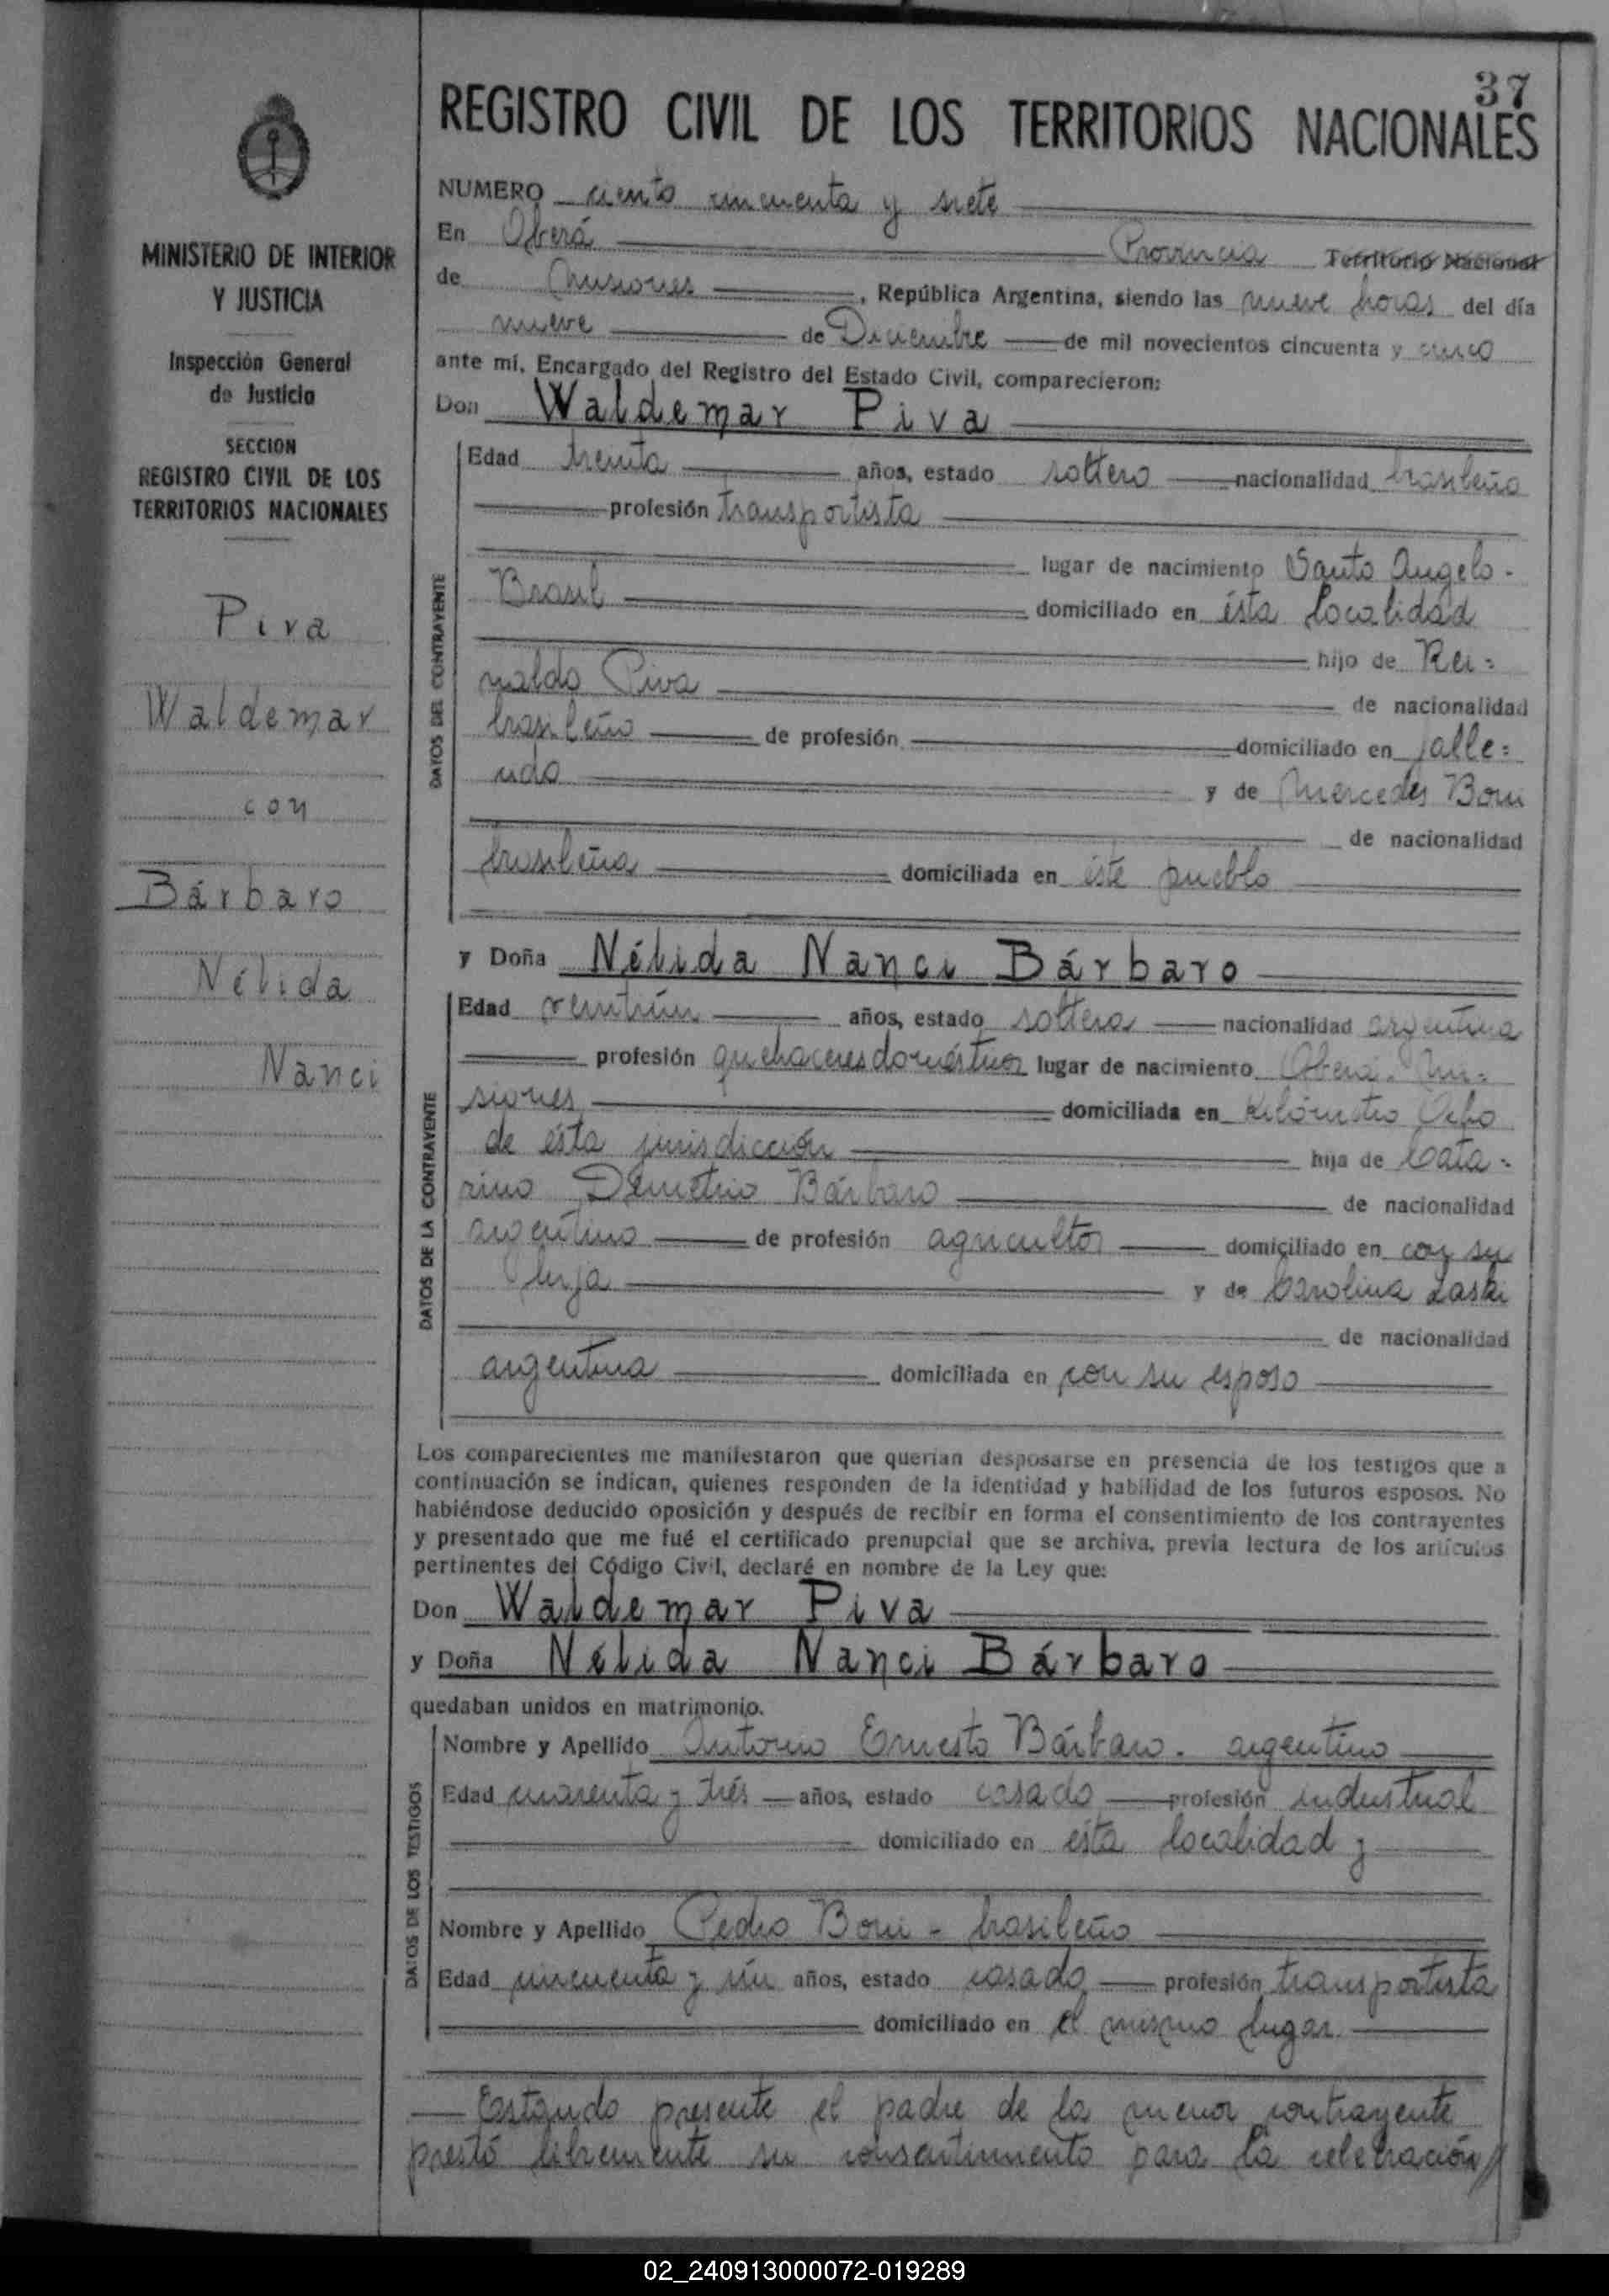 37
REGISTRO CIVIL DE LOS TERRITORIOS NACIONALES
MINISTERIO DE INTERIOR
Y JUSTICIA
Inspección General
de Justicia
SECCION
REGISTRO CIVIL DE LOS
TERRITORIOS NACIONALES
Piva
Waldemar
con
Bárbaro
Nélida
Nanci
NUMERO ciento cincuenta y siete
En Oberá Provincia Territorio Nacional
de Misiones, República Argentina, siendo las nueve horas del día
nueve de Diciembre de mil novecientos cincuenta y cinco
ante mí, Encargado del Registro del Estado Civil, comparecieron:
Don Waldemar Piva
DATOS DEL CONTRAYENTE
Edad treinta años, estado soltero nacionalidad brasileño
profesión transportista
lugar de nacimiento Santo Angelo -
Brasil domiciliado en ésta localidad
hijo de Rei=
naldo Piva de nacionalidad
brasileño de profesión domiciliado en falle=
cido y de Mercedes Boni
de nacionalidad
brasileña domiciliada en éste pueblo
y Doña Nélida Nanci Bárbaro
DATOS DE LA CONTRAYENTE
Edad veintiún años, estado soltera nacionalidad argentina
profesión quehaceres domésticos lugar de nacimiento Oberá. Mi=
siones domiciliada en Kilómetro Ocho
de ésta jurisdicción hija de Cata=
rino Demetrio Bárbaro de nacionalidad
argentino de profesión agricultor domiciliado en con su
hija y de Carolina Laski
de nacionalidad
argentina domiciliada en con su esposo
Los comparecientes me manifestaron que querían desposarse en presencia de los testigos que a
continuación se indican, quienes responden de la identidad y habilidad de los futuros esposos. No
habiéndose deducido oposición y después de recibir en forma el consentimiento de los contrayentes
y presentado que me fué el certificado prenupcial que se archiva, previa lectura de los artículos
pertinentes del Código Civil, declaré en nombre de la Ley que:
Don Waldemar Piva
y Doña Nélida Nanci Bárbaro
quedaban unidos en matrimonio.
DATOS DE LOS TESTIGOS
Nombre y Apellido Antonio Ernesto Bárbaro. argentino
Edad cuarenta y trés años, estado casado profesión industrial
domiciliado en ésta localidad y
Nombre y Apellido Pedro Boni - brasileño
Edad cincuenta y ún años, estado casado profesión transportista
domiciliado en el mismo lugar.
Estando presente el padre de la menor contrayente
prestó libremente su consentimiento para la celebración//
02_240913000072-019289